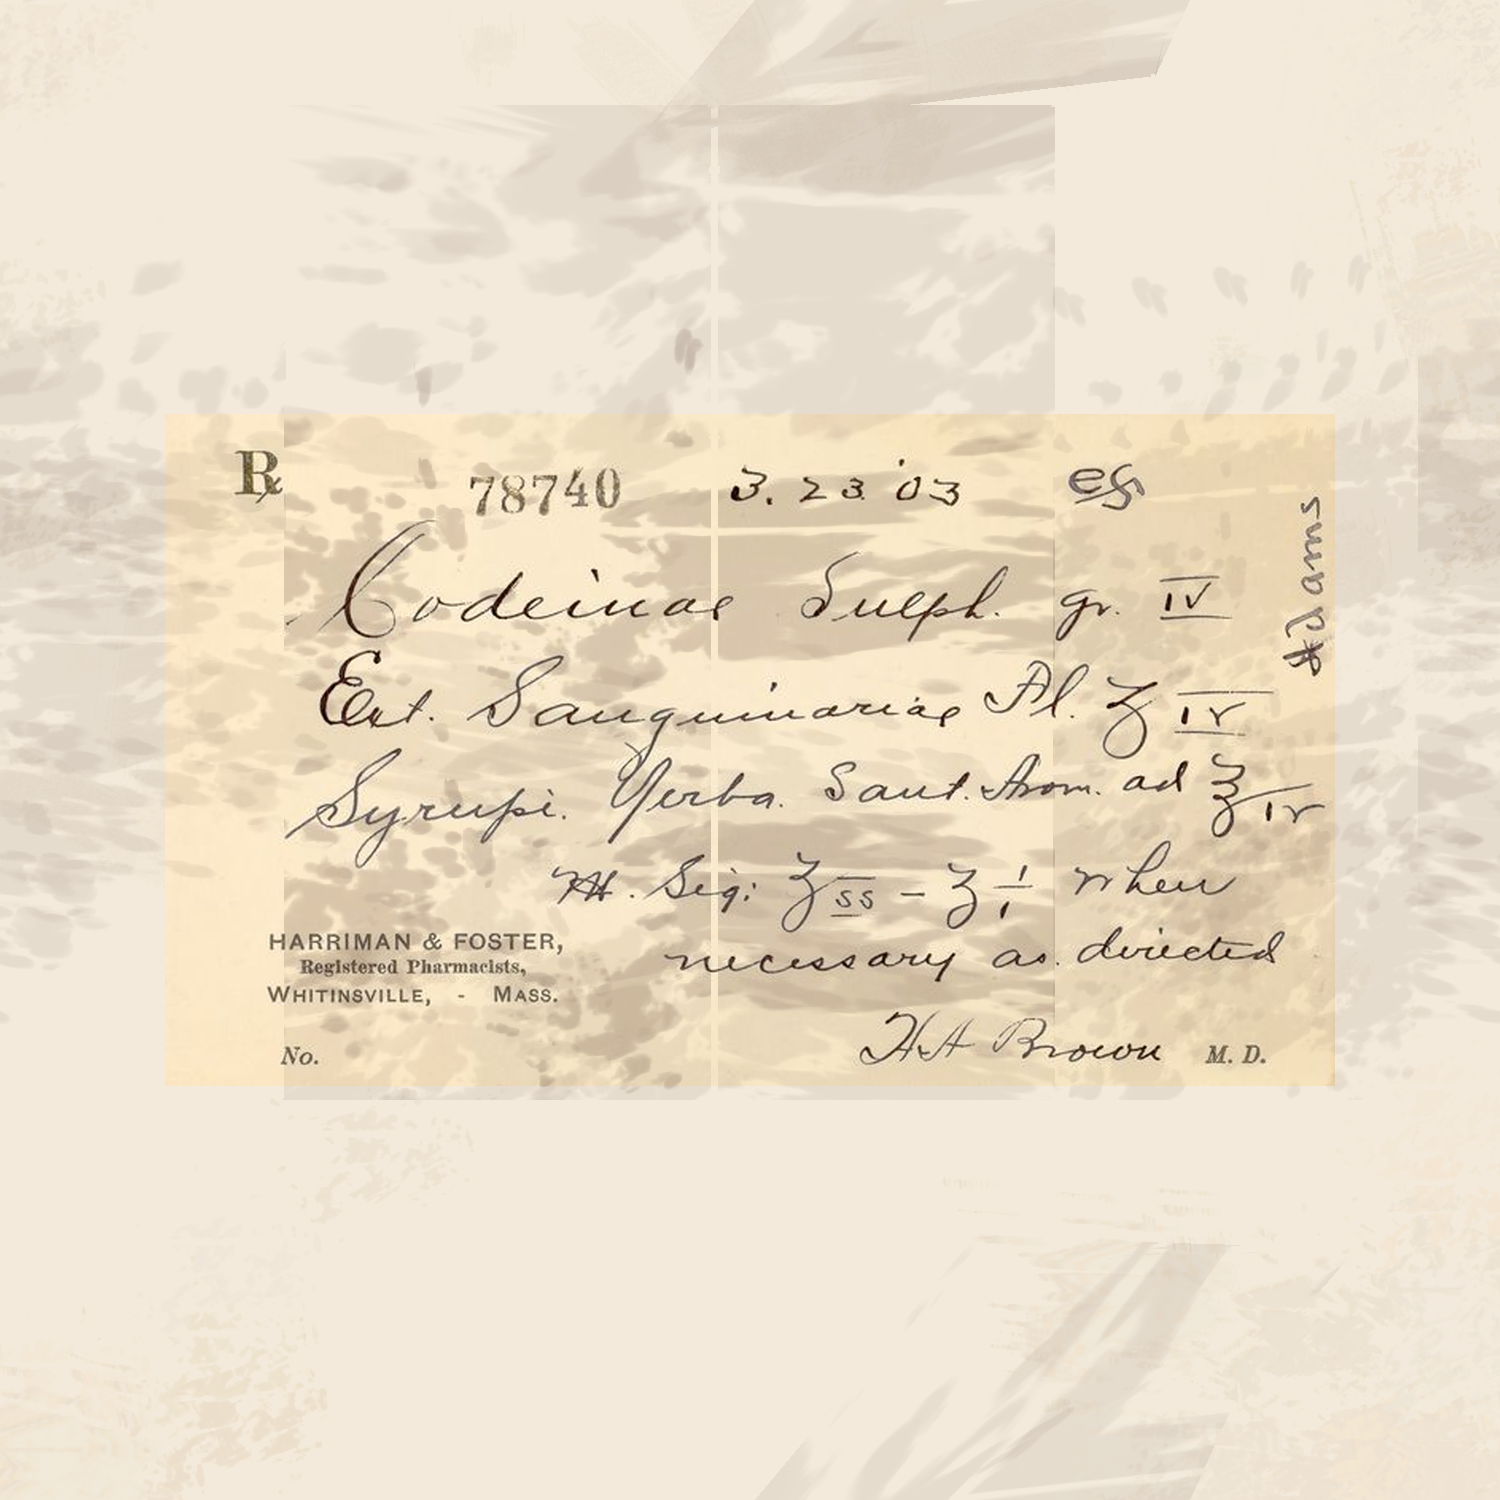 ℞ 78740 3.23.'03
Codeinae Sulph. gr. IV
Ext. Sanguinariae Fl. ʒ IV
Syrupi. Yerba. Sant. Arom. ad ℥ IV
M. Sig: ʒ ss - ʒ i when
necessary as directed
HARRIMAN & FOSTER,
Registered Pharmacists,
WHITINSVILLE, - MASS.
No.
H A Brown M. D.
Adams